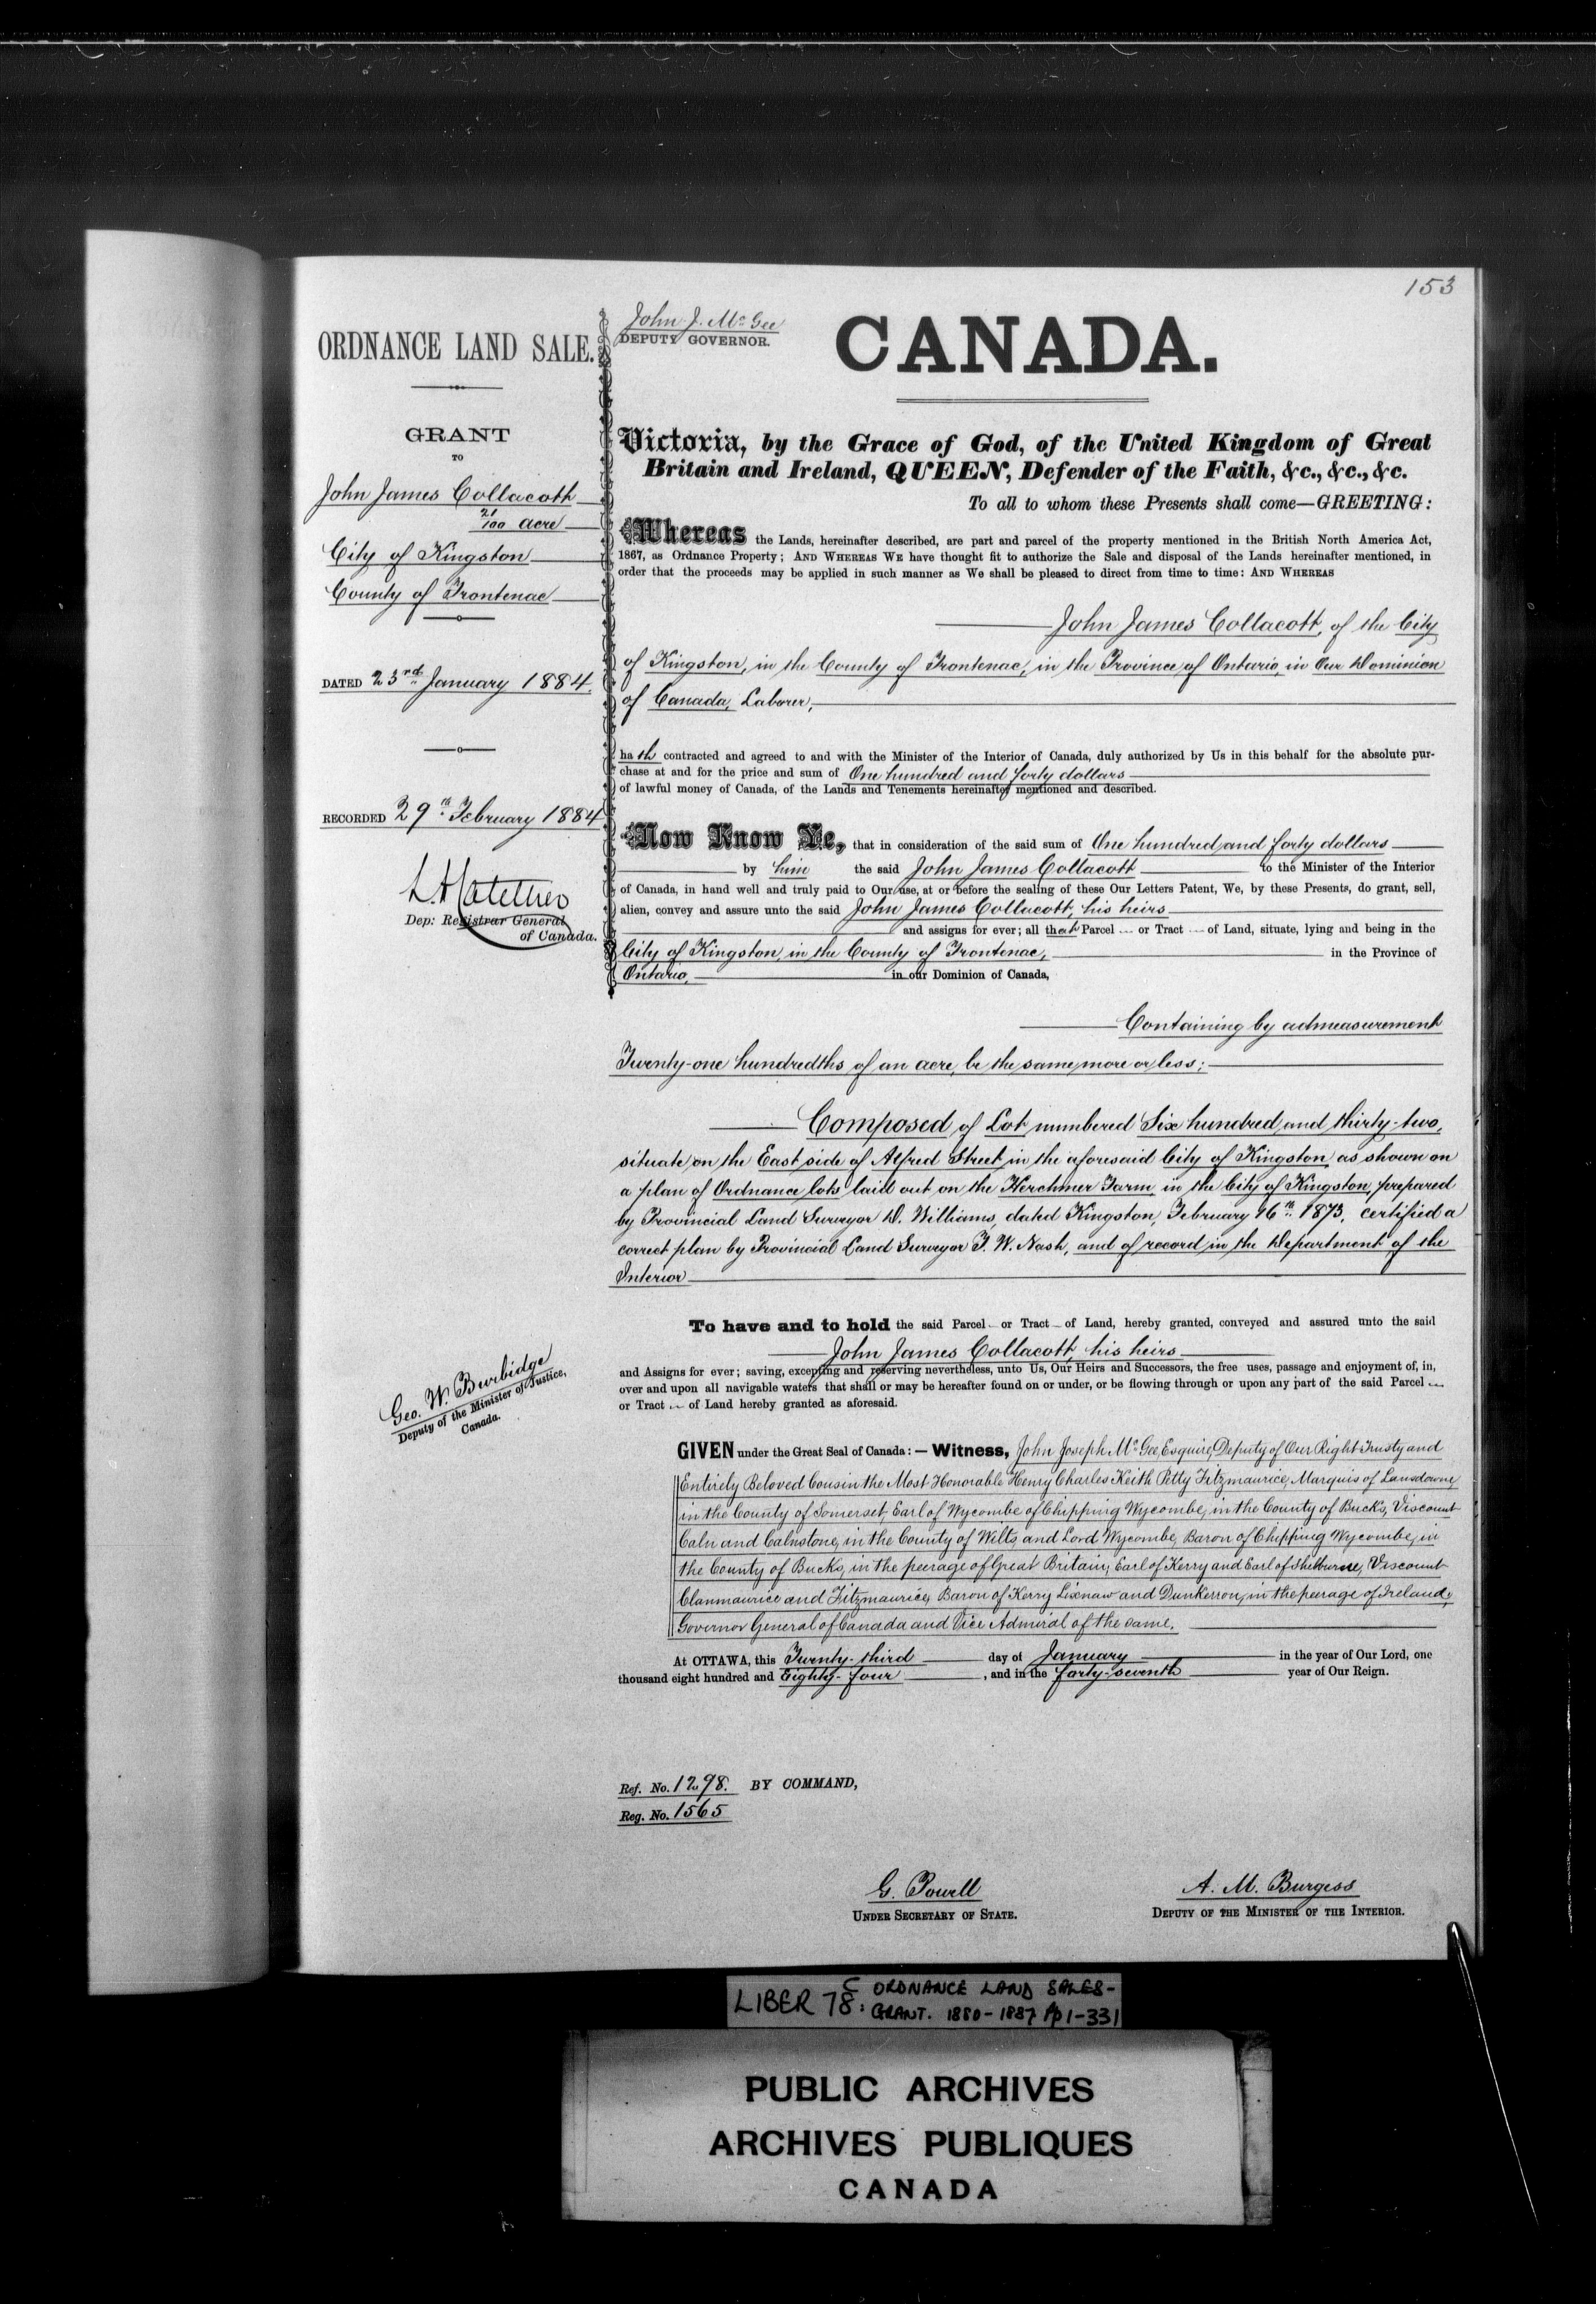 153
ORDNANCE LAND SALE.
GRANT
TO
John James Collacott
21/100 acre
City of Kingston
County of Frontenac
DATED 23rd January 1884.
RECORDED 29th February 1884
Dep: Registrar General
of Canada.
Geo. W. Burbidge
Deputy of the Minister of Justice,
Canada.
John J. McGee
DEPUTY GOVERNOR.
CANADA.
Victoria, by the Grace of God, of the United Kingdom of Great
Britain and Ireland, QUEEN, Defender of the Faith, &c., &c., &c.
To all to whom these Presents shall come—GREETING:
Whereas the Lands, hereinafter described, are part and parcel of the property mentioned in the British North America Act,
1867, as Ordnance Property; AND WHEREAS WE have thought fit to authorize the Sale and disposal of the Lands hereinafter mentioned, in
order that the proceeds may be applied in such manner as We shall be pleased to direct from time to time: AND WHEREAS
John James Collacott, of the City
of Kingston, in the County of Frontenac, in the Province of Ontario, in Our Dominion
of Canada, Laborer,
hath contracted and agreed to and with the Minister of the Interior of Canada, duly authorized by Us in this behalf for the absolute pur-
chase at and for the price and sum of One hundred and forty dollars
of lawful money of Canada, of the Lands and Tenements hereinafter mentioned and described.
Now Know Ye, that in consideration of the said sum of One hundred and forty dollars
by him the said John James Collacott to the Minister of the Interior
of Canada, in hand well and truly paid to Our use, at or before the sealing of these Our Letters Patent, We, by these Presents, do grant, sell,
alien, convey and assure unto the said John James Collacott, his heirs
and assigns for ever; all that Parcel or Tract of Land, situate, lying and being in the
City of Kingston, in the County of Frontenac, in the Province of
Ontario, in our Dominion of Canada,
Containing by admeasurement
Twenty-one hundredths of an acre, be the same more or less;
Composed of Lot numbered Six hundred and thirty-two,
situate on the East side of Alfred Street in the aforesaid City of Kingston as shown on
a plan of Ordnance lots laid out on the Herchmer Farm, in the City of Kingston, prepared
by Provincial Land Surveyor D. Williams, dated Kingston, February 16th 1873, certified a
correct plan by Provincial Land Surveyor T. W. Nash, and of record in the Department of the
Interior
To have and to hold the said Parcel or Tract of Land, hereby granted, conveyed and assured unto the said
John James Collacott, his heirs
and Assigns for ever; saving, excepting and reserving nevertheless, unto Us, Our Heirs and Successors, the free uses, passage and enjoyment of, in,
over and upon all navigable waters that shall or may be hereafter found on or under, or be flowing through or upon any part of the said Parcel
or Tract of Land hereby granted as aforesaid.
GIVEN under the Great Seal of Canada:—Witness, John Joseph McGee, Esquire, Deputy of Our Right Trusty and
Entirely Beloved Cousin the Most Honorable Henry Charles Keith Petty Fitzmaurice, Marquis of Lansdowne,
in the County of Somerset, Earl of Wycombe of Chipping Wycombe, in the County of Bucks, Viscount
Caln and Calnstone, in the County of Wilts, and Lord Wycombe, Baron of Chipping Wycombe, in
the County of Bucks, in the peerage of Great Britain; Earl of Kerry and Earl of Shelburne, Viscount
Clanmaurice and Fitzmaurice, Baron of Kerry Lixnaw and Dunkerron, in the peerage of Ireland;
Governor General of Canada and Vice Admiral of the same.
At OTTAWA, this Twenty-third day of January in the year of Our Lord, one
thousand eight hundred and Eighty-four, and in the forty-seventh year of Our Reign.
Ref. No. 1298. BY COMMAND,
Reg. No. 1565
G. Powell
UNDER SECRETARY OF STATE.
A. M. Burgess
DEPUTY OF THE MINISTER OF THE INTERIOR.
LIBER 78C: ORDNANCE LAND SALES-
GRANT. 1880-1887 pp 1-331
PUBLIC ARCHIVES
ARCHIVES PUBLIQUES
CANADA